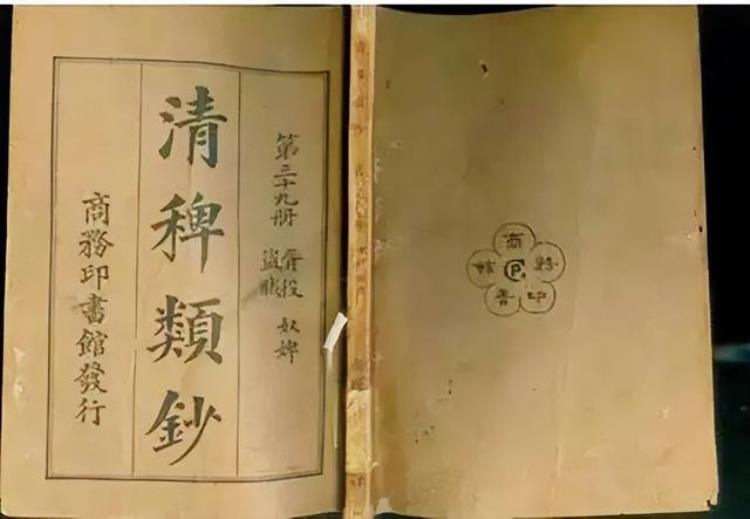 第三十九册
胥役
盜賊
奴婢
清稗類鈔
商務印書館發行
商務印書館
CP